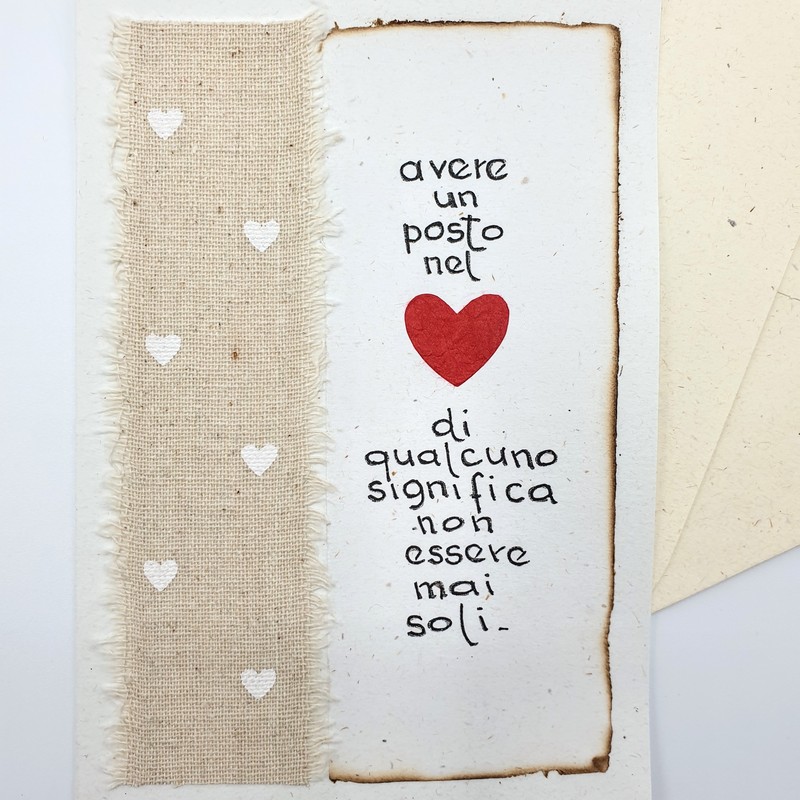 avere
un
posto
nel
di
qualcuno
significa
non
essere
mai
soli.